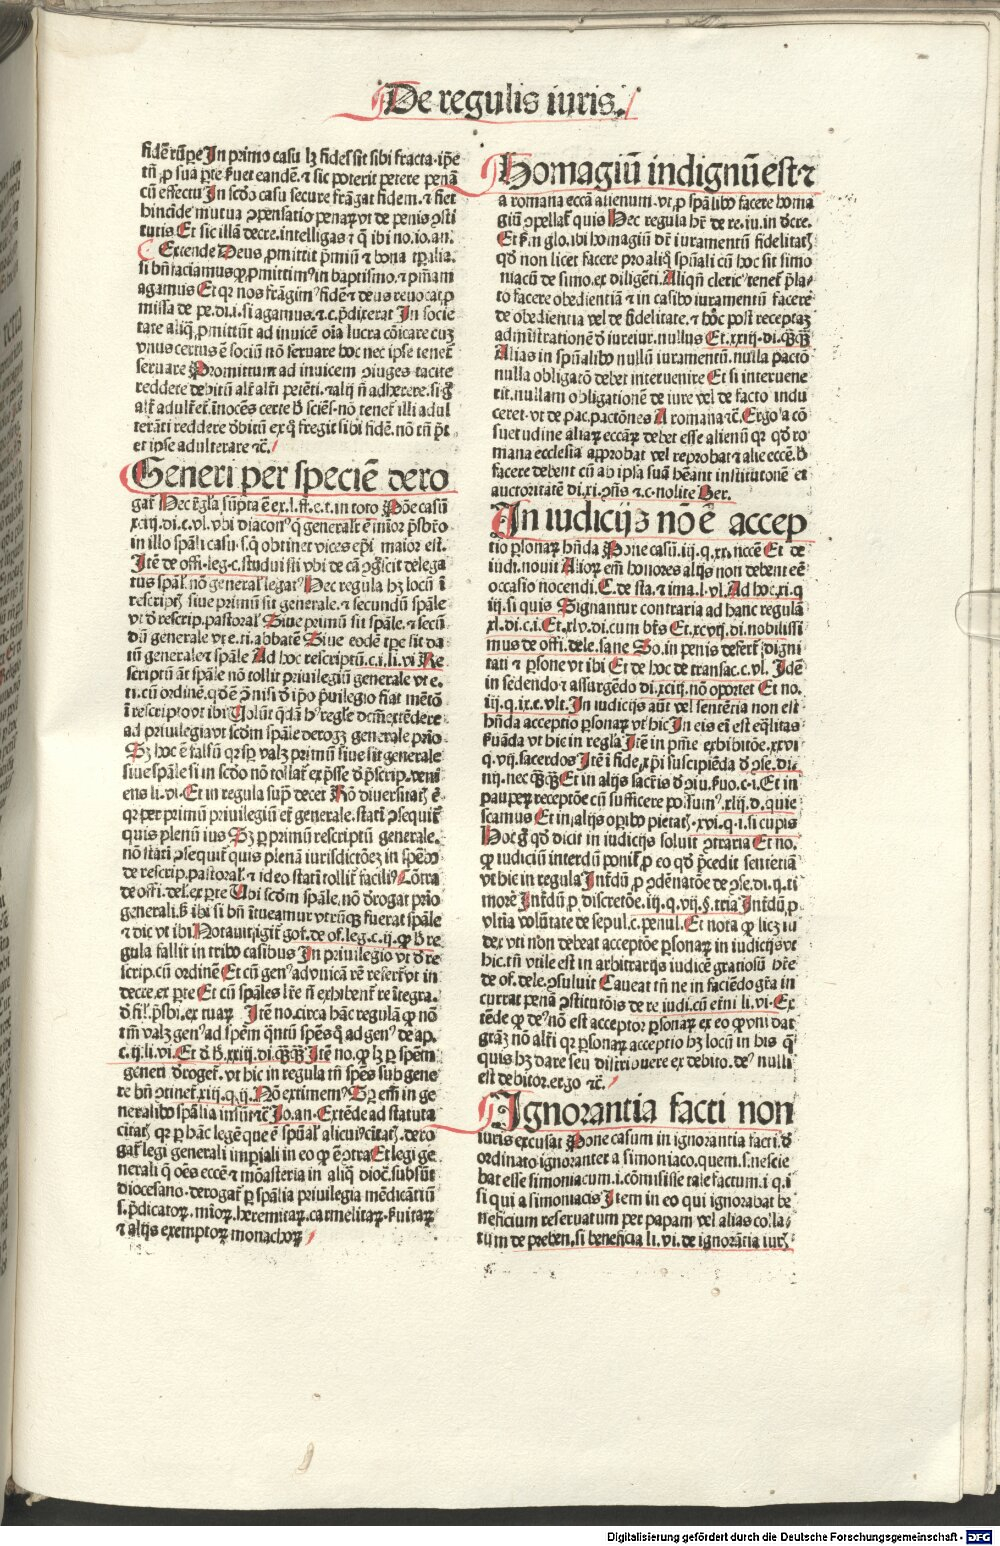 De regulis iuris.
fidē rūpe In primo casu lꝫ fides sit sibi fracta. ipe
tn̄ ꝓ sua pte ẜuet eandē. ⁊ sic poterit petere penā
cū effectu In scd̄o casu secure frāgat fidem. ⁊ fiet
hincinde mutua ꝯpensatio penaꝝ vt de penis ꝯsti
tutis Et sic illā decre. intelligas ⁊ q̄ ibi no. io. an.
Extende Deus ꝓmittit p̄miū ⁊ bona tp̄alia.
si bn̄ faciamus ꝙ ꝓmittimꝰ in baptismo. ⁊ pn̄iam
agamus Et qꝛ nos frāgimꝰ fidē ⁊ deus reuocat ꝓ
missa de pe. di. i. si agamus. ⁊ c. p̄diterat In socie
tate aliq̄ ꝓmittūt ad inuicē oīa lucra cōicare cuꝫ
vnus certus ē sociū nō seruare hoc nec ipse tenet̄
seruare Promittunt ad inuicem ꝯiuges tacite
reddere debitū alt̄ alt̄i petēti. ⁊ alij nō adherere. si ḡ
alt̄ adult̄et̄. inocēs certe ꝺ sciēs. nō tenet̄ illi adul
terāti reddere ꝺbitū ex q̄ fregit sibi fidē. nō tn̄ p̄t
et ipse adulterare ⁊c.
Generi per speciē dero
gat̄ Hec r̄gla sūpta ē ex. l. ff. e. t. in toto Pōe casū
xciij. di. c. vl. vbi diaconꝰ q̄ generalr̄ ē mīor p̄sbro
in illo sp̄ali casu. s. q̄ obtinet vices epī maior est.
Itē de offi. leg. c. studuisti vbi de cā ꝯgscit delega
tus sp̄al. nō general̄ legatꝰ Hec regula hꝫ locū ī
rescript̄ siue primū sit generale. ⁊ secundū sp̄ale
vt ꝺ rescrip. pastoral̄ Siue primū sit sp̄ale. ⁊ secū
dū generale vt e. ti. abbatē Siue eodē tpe sit da
tū generale ⁊ sp̄ale Ad hoc rescriptū. c. i. li. vi Re
scriptū aūt sp̄ale nō tollit priuilegiū generale vt e.
ti. cū ordinē. qꝺ ē ꝓ nisi ꝺ ip̄o p̄uilegio fiat mētō
ī rescripto vt ibi Tolūt q̄dā hꝰ regl̄e dc̄m extēdere
ad priuilegia vt scd̄m sp̄ale derogꝫ generale prio
Sꝫ hoc ē falsū qꝛ sꝑ valꝫ primū siue sit generale
siue sp̄ale si in scd̄o nō tollat̄ exp̄sse ꝺ p̄scrip. veni
ens li. vi. Et in regula sup̄ decet Rō diuersitat̄ ē.
qꝛ per primū priuilegiū et̄ generale. stati ꝯsequit̄
quis plenū ius Sꝫ ꝑ primū rescriptū generale.
nō stati ꝯsequit̄ quis plenā iurisdictōeꝫ in spē ꝺo
de rescrip. pastoral̄. ⁊ ideo stati tollit̄ faciliꝰ Cōtra
de offi. del. ex pte Ubi scd̄m sp̄ale. nō ꝺrogat prio
generali. ẜ ibi si bn̄ ītueamur vtrūq̄ fuerat sp̄ale
⁊ dic vt ibi Notauit igit̄ gof̄. de of. leg. c. ij. ꝙ ꝺ re
gula fallit in tribꝰ casibus In priuilegio vt ꝺ re
scrip. cū ordinē Et cū genꝰ ad vnicā rē refert̄ vt in
decre. ex pte Et cū sp̄ales lr̄e n̄ exhibent̄ re ītegra.
ꝺ fil̄. p̄sbi. ex tuaꝝ Itē no. circa hāc regulā ꝙ nō
tm̄ valꝫ genꝰ ad spēm q̄ntū spēs q̄ ad genꝰ de ap.
c. ij. li. vi. Et ꝺ ꝺ. xxiij. di. q̄ꝫq̄ꝫ Itē no. ꝙ lꝫ ꝑ spēm
generi ꝺroget̄. vt hic in regula tn̄ spēs sub gene
re bn̄ ꝯtinet̄. xiij. q. ij. Nō extimemꝰ Gn̄ eni in ge
neralibꝰ sp̄alia insūt ⁊c Jo. an. Extēde ad statuta
citat̄ qꝛ ꝑ hāc legē que ē sp̄ual̄ alicuiꝰ citat̄. dero
gat̄ legi generali imp̄iali in eo ꝙ ē ꝯtra Et legi ge
nerali q̄ oēs eccē ⁊ mōasteria in aliq̄ dioc̄. subsūt
diocesano. derogat̄ ꝑ sp̄alia priuilegia mēdicātiū
s. p̄dicatoꝝ. mīoꝝ. heremitaꝝ. carmelitaꝝ. ẜuitaꝝ
⁊ alijs exemptoꝝ monachoꝝ
Homagiū indignū est ⁊
a romana eccā alienum. vt ꝓ sp̄alibꝰ facere homa
giū ꝯpellat̄ quis Hec regula hr̄ de re. iu. in ꝺcre.
Et ẜm glo. ibi homagiū dr̄ iuramentū fidelitat̄
qꝺ non licet facere pro aliq̄ sp̄uali cū hoc sit simo
niacū de simo. ex diligēti. Aliqn̄ clericꝰ tenet̄ p̄la-
to facere obedientiā ⁊ in casibꝰ iuramentū facere
de obedientia vel de fidelitate. ⁊ hoc post receptaꝫ
administrationē ꝺ iureiur. nullus Et. xxiij. di. q̄ꝫq̄ꝫ
Alias in sp̄ualibꝰ nullū iuramentū. nulla pactō
nulla obligatō debet interuenire Et si interuene
rit. nullam obligationē de iure vel de facto indu
ceret. vt de pac. pactōnes A romana ⁊c. Ergo a cō
suetudine aliaꝝ eccāꝝ debet esse alienū qꝛ qꝺ ro
mana ecclesia approbat vel reprobat ⁊ alie eccē. ꝺ
facere debent cū ab ipsa suā hēant institutionē et
auctoritatē di. xi. ꝓsis ⁊ c. nolite Ber.
In iudicijs nō ē accep
tio ꝑsonaꝝ hn̄da Pone casū. iij. q. xx. nccē Et de
iudi. nouit Alioꝝ em̄ honores alijs non debent eē
occasio nocendi. C. de sta. ⁊ ima. l. vl. Ad hoc. xi. q
iij. si quis Signantur contraria ad hanc regulā
xl. di. c. i. Et. xlv. di. cum bt̄s Et. xcvij. di. nobilissi
mus de offi. dele. sane So. in penis defert̄ digni
tati ⁊ ꝑsone vt ibi Et de hoc de transac. c. vl. Idē
in sedendo ⁊ assurgēdo di. xciij. nō oportet Et no.
iij. q. ix. c. vlt. In iudicijs aūt vel sentētia non est
hn̄da acceptio ꝑsonaꝝ vt hic In eis ei est eq̄litas
ẜuāda vt hic in regla Itē in pn̄ie exhibitōe. xxvi
q. vij. sacerdos Itē ī fide. xp̄i suscipiēda ꝺ ꝯse. di.
iiij. nec q̄ꝫq̄ꝫ Et in alijs sacris ꝺ ꝯiu. ẜuo. c. i. Et in
paupeꝝ receptōe cū sufficere possumꝰ. xlij. d. quie
scamus Et in alijs oꝑibꝰ pietat̄. xvi. q. i. si cupis
Hoc ḡ qꝺ dicit in iudicijs soluit ꝯtraria Et no.
ꝙ iudiciū interdū ponit̄ ꝓ eo qꝺ p̄cedit sentētiā
vt hic in regula Int̄dū ꝓ ꝯdēnatōe de ꝯse. di. q. ti
morē Int̄dū ꝓ discretōe. iij. q. vij. §. tria Int̄dū ꝓ
vltīa volūtate de sepul. c. penul. Et nota ꝙ licꝫ iu
dex vti non debeat acceptōe ꝑsonaꝝ in iudicijs vt
hic. tn̄ vtile est in arbitrarijs iudicē gratiosū hr̄e
de of. dele. ꝯsuluit Caueat tn̄ ne in faciēdo gr̄ia in
currat penā ꝯstitutōis de re iudi. cū et̄ni li. vi. Ex
tēde ꝙ deꝰ nō est acceptor ꝑsonaꝝ ex eo ꝙ vni dat
grāꝫ nō alt̄i qꝛ ꝑsonaꝝ acceptio hꝫ locū in his q̄
quis hꝫ dare seu distribuere ex debito. deꝰ nulli
est debitor. ergo ⁊c.
Ignorantia facti non
iuris excusat Pone casum in ignorantia facti. ꝺ
ordinato ignoranter a simoniaco. quem. s. nescie
bat esse simoniacum. i. cōmisisse tale factum. i q. i
si qui a simoniacis Item in eo qui ignorabat be
neficium reseruatum per papam vel alias colla-
tum de preben. si beneficia li. vi. de ignorātia iur̄
Digitalisierung gefördert durch die Deutsche Forschungsgemeinschaft - DFG